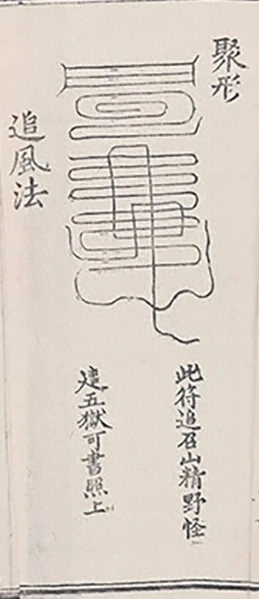 聚形
此符追召山精野怪
建五獄可書照上
追風法